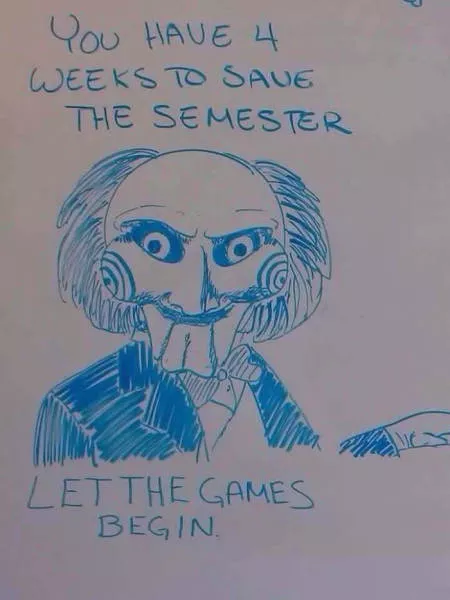 YOU HAVE 4
WEEKS TO SAVE
THE SEMESTER
LET THE GAMES
BEGIN.